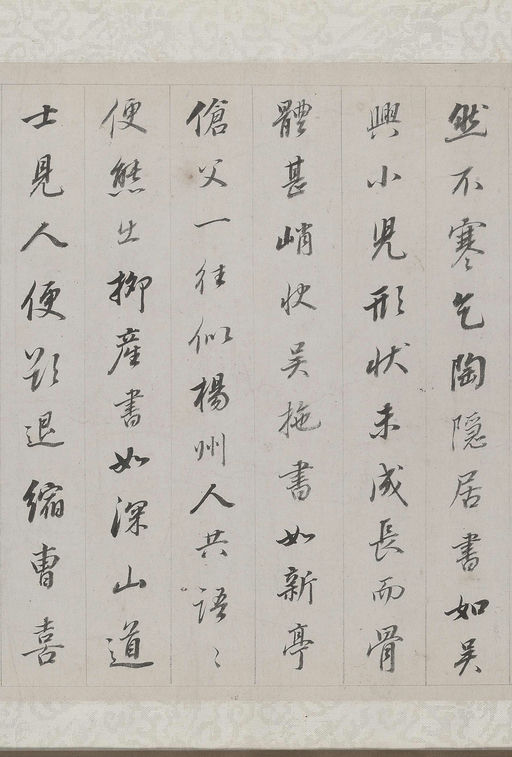 然不寒乞陶隱居書如吳
興小児形状未成長而骨
體甚峭快吴拖書如新亭
傖父一往似楊州人共語〻
便態出柳産書如深山道
士見人便欵退縮曹喜